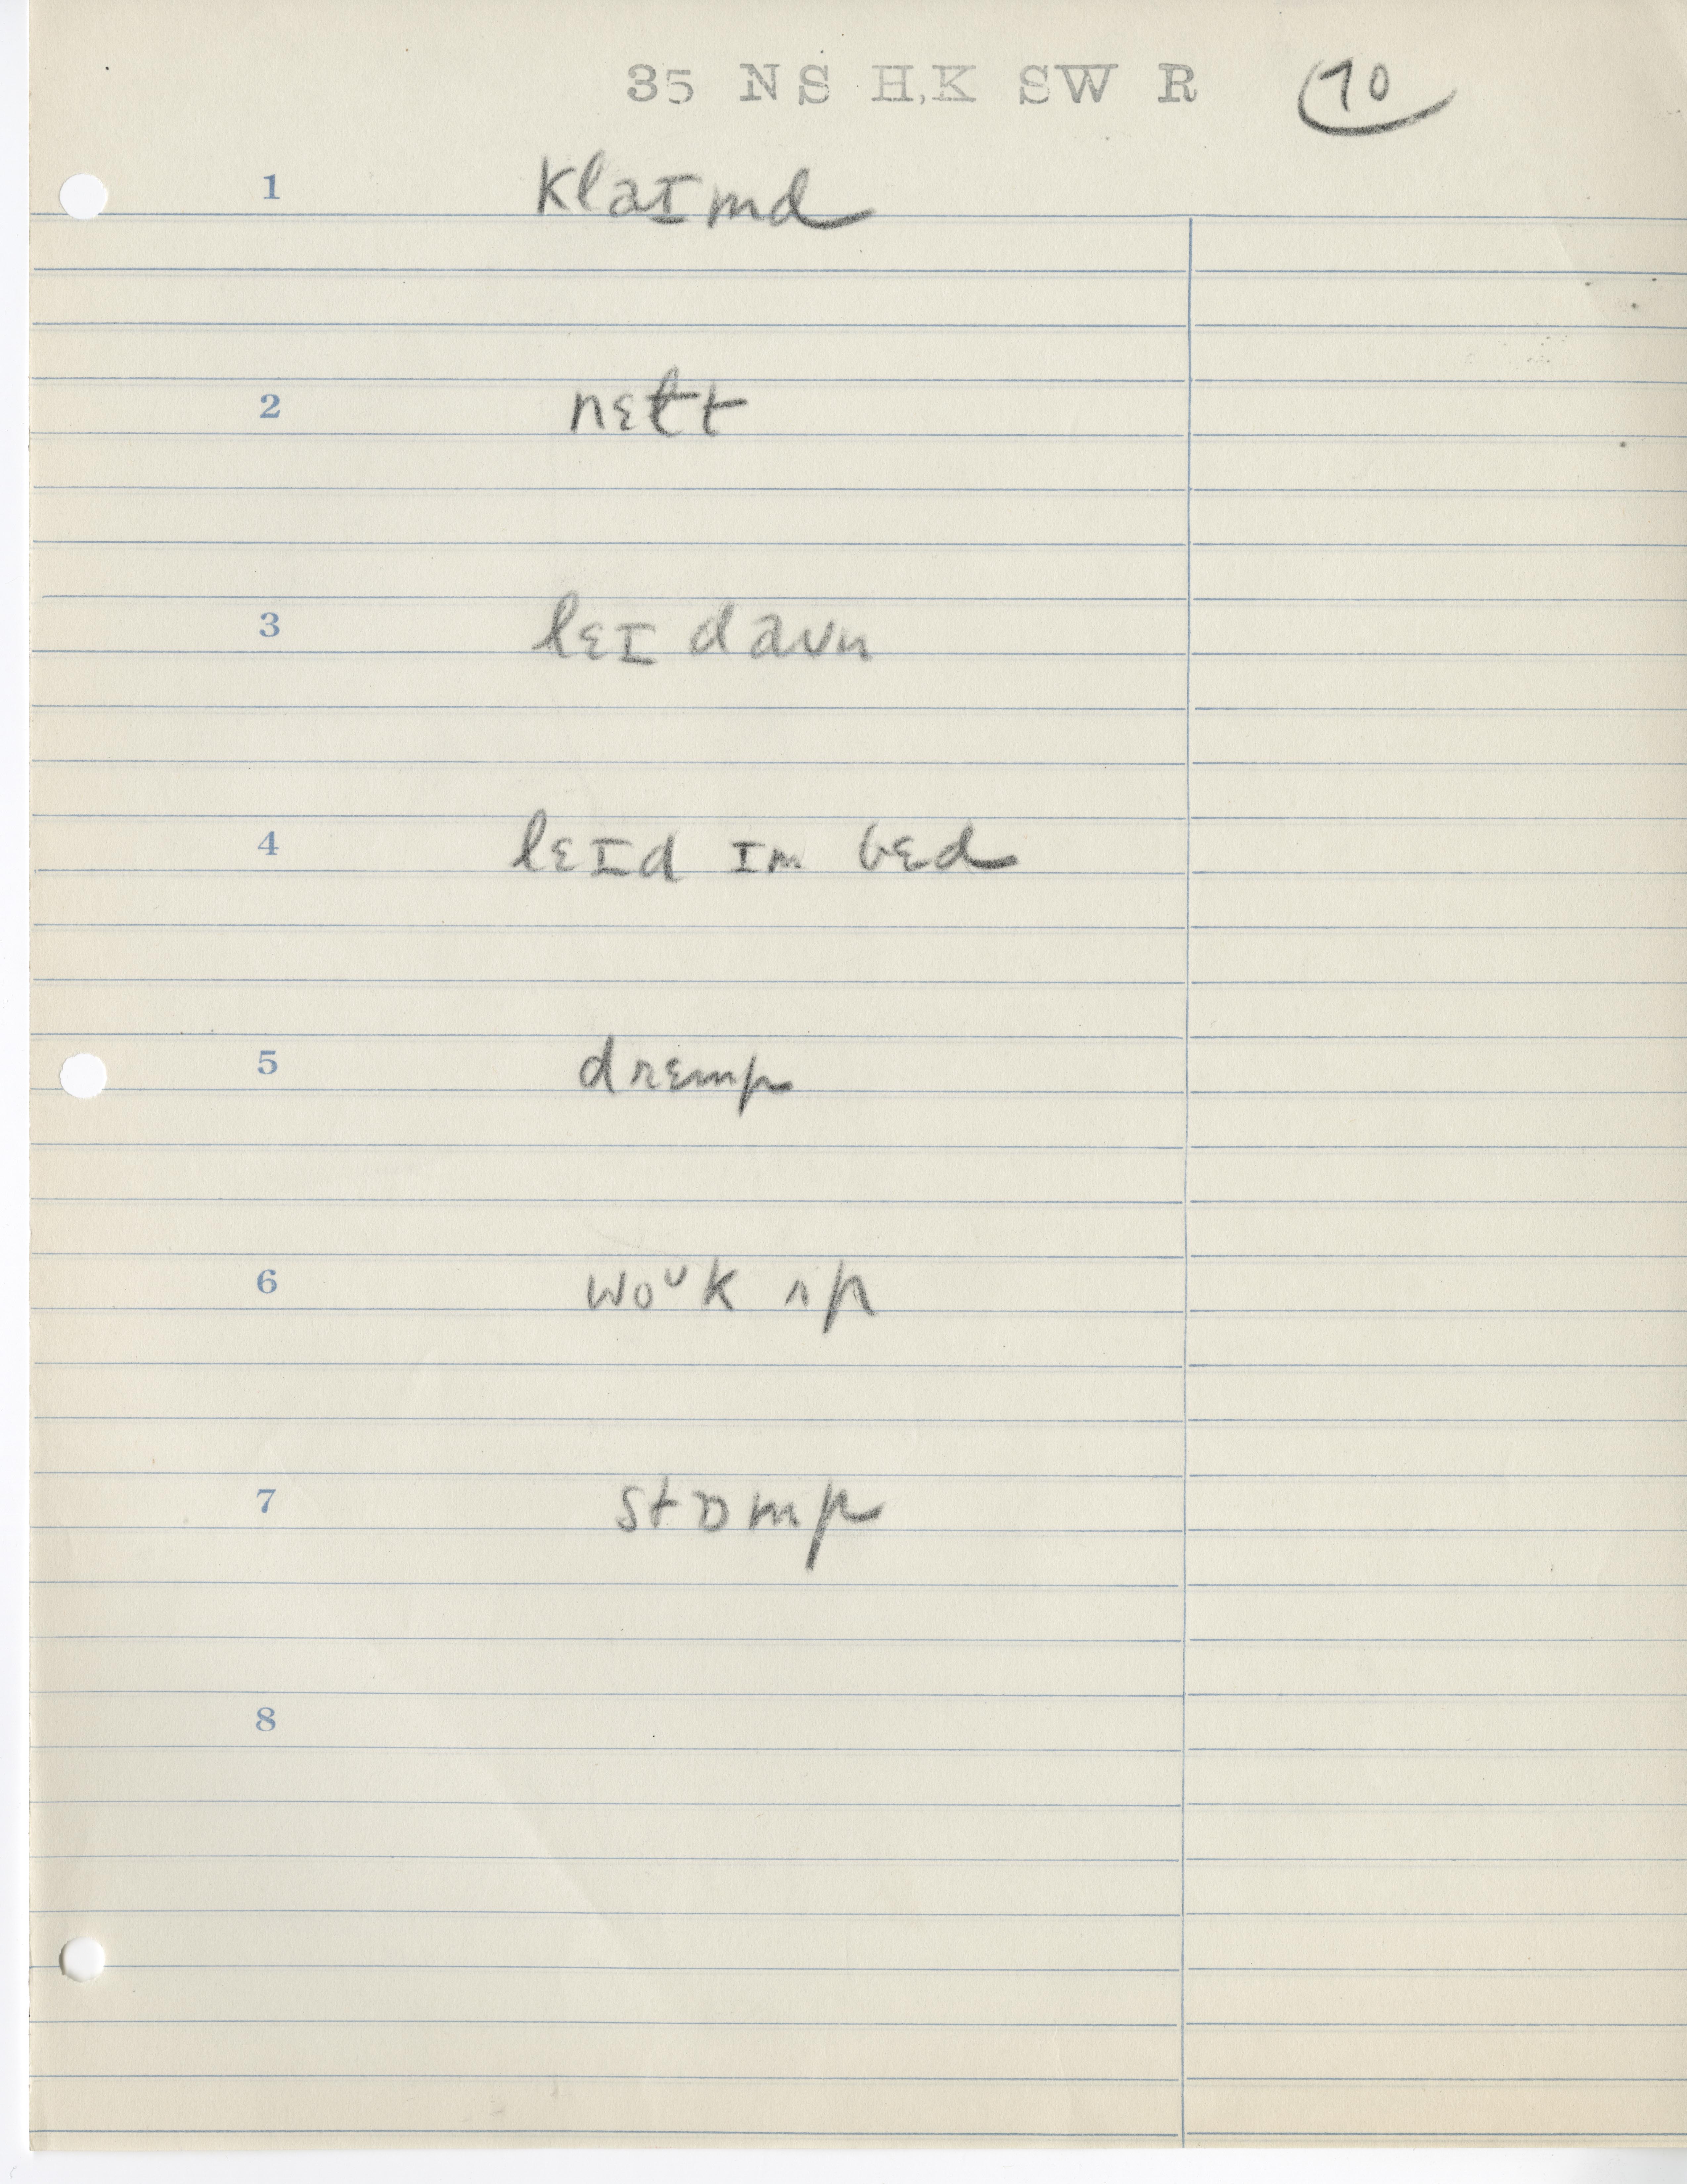 35 NS H,K SW R 70
1 klaɪmd
2 nɛlt
3 lɛɪ daʊn
4 lɛɪd ɪm bɛd
5 drɛmp
6 woᶷk ʌp
7 stɒmp
8